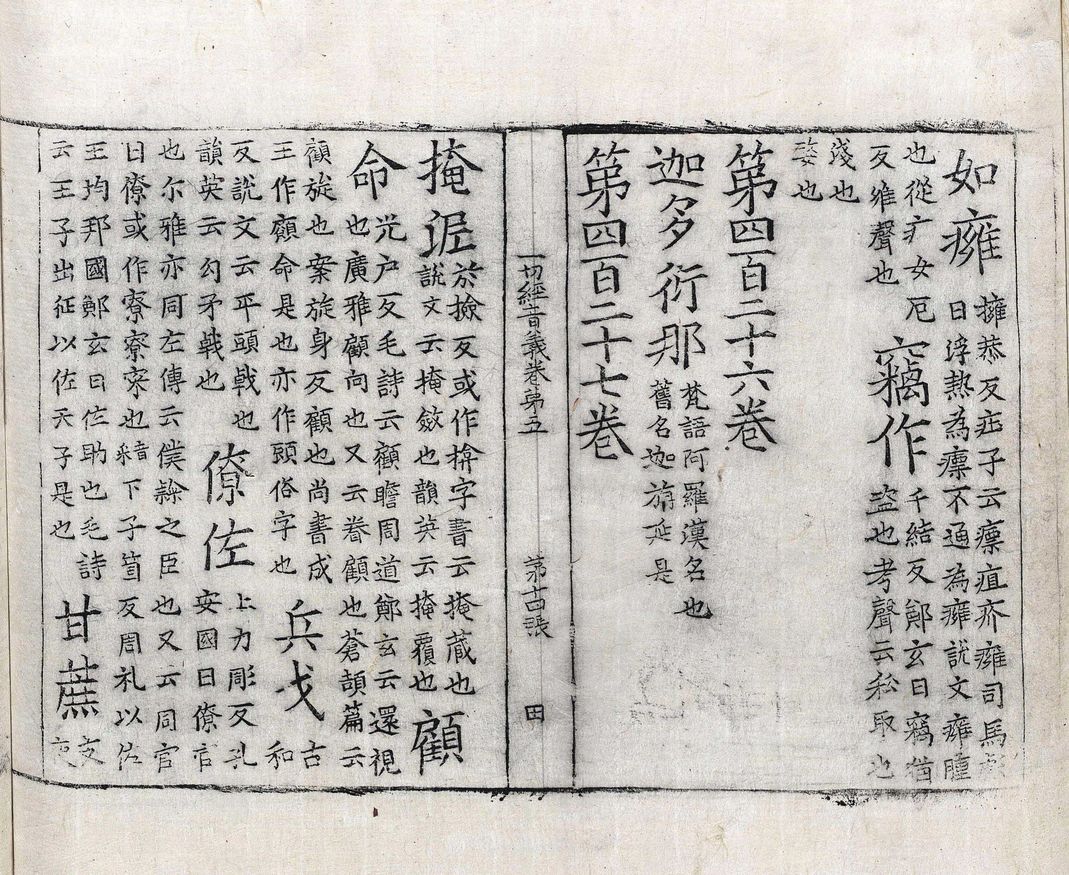 如癰 擁恭反疪子云瘭疽疥癰司馬彪
曰浮熱為瘭不通為癰說文癰腫
也從疒女厄 竊作 千結反鄭玄曰竊猶
反雍聲也 盜也考聲云私取也
淺也
妄也
第四百二十六卷
迦多衍那 梵語阿羅漢名也
舊名迦旃延是
第四百二十七卷
一切經音義卷第五 第十四張 田
掩泥 於撿反或作揜字書云掩蔵也
說文云掩斂也韻英云掩覆也 顧
命 光户反毛詩云顧瞻周道鄭玄云還視
也廣雅顧向也又云眷顧也蒼頡篇云
顧旋也案旋身反顧也尚書成
王作顧命是也亦作頭俗字也 兵戈 古
和
反說文云平頭戟也
韻英云勾矛戟也 僚佐 上力彫反孔
安國曰僚官
也尔雅亦同左傳云僕隷之臣也又云同官
曰僚或作寮寮寀也寀音下子箇反周礼以佐
王均邦國鄭玄曰佐助也毛詩
云王子出征以佐天子是也 甘蔗